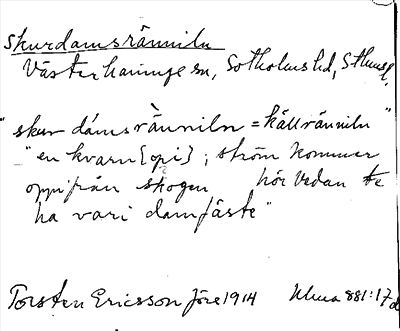 skurdamsränniln
Västerhaninge sn, Sotholms hd, Sthmsl.
"skur dámsrä̀nniln = källränniln"
"en kvarn {opi} ; ström kommer
oppifrån skogen hör vedan te
ha vari damfäste"
Torsten Ericsson före 1914 Ulma 881:17 d